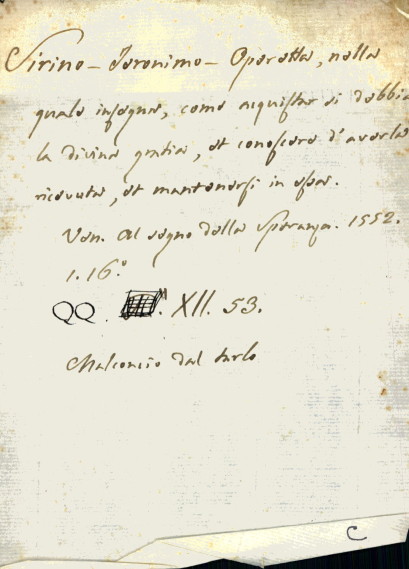 Sirino - Jeronimo - Operetta, nella
quale insegna, come acquistar si debbia
la divina gratia, et conoscere d'averla
ricevuta, et mantenersi in essa.
Ven. al segno della Speranza. 1552.
1. 16.°
QQ . M. XII. 53.
Malconcio dal tarlo
C